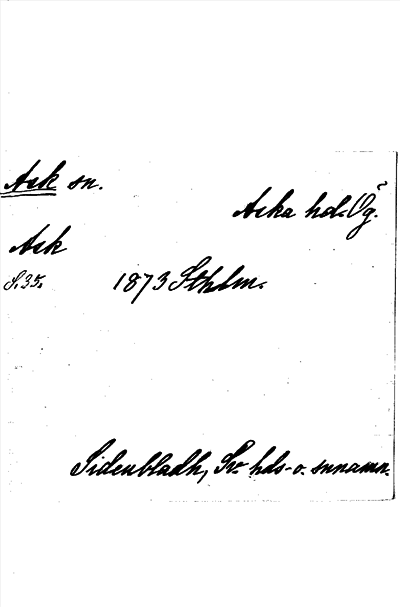 Ask sn.
Aska hd. Ög.
Ask
S. 35. 1873 Sthlm.
Sidenbladh, Sv. hds- o. snnamn.